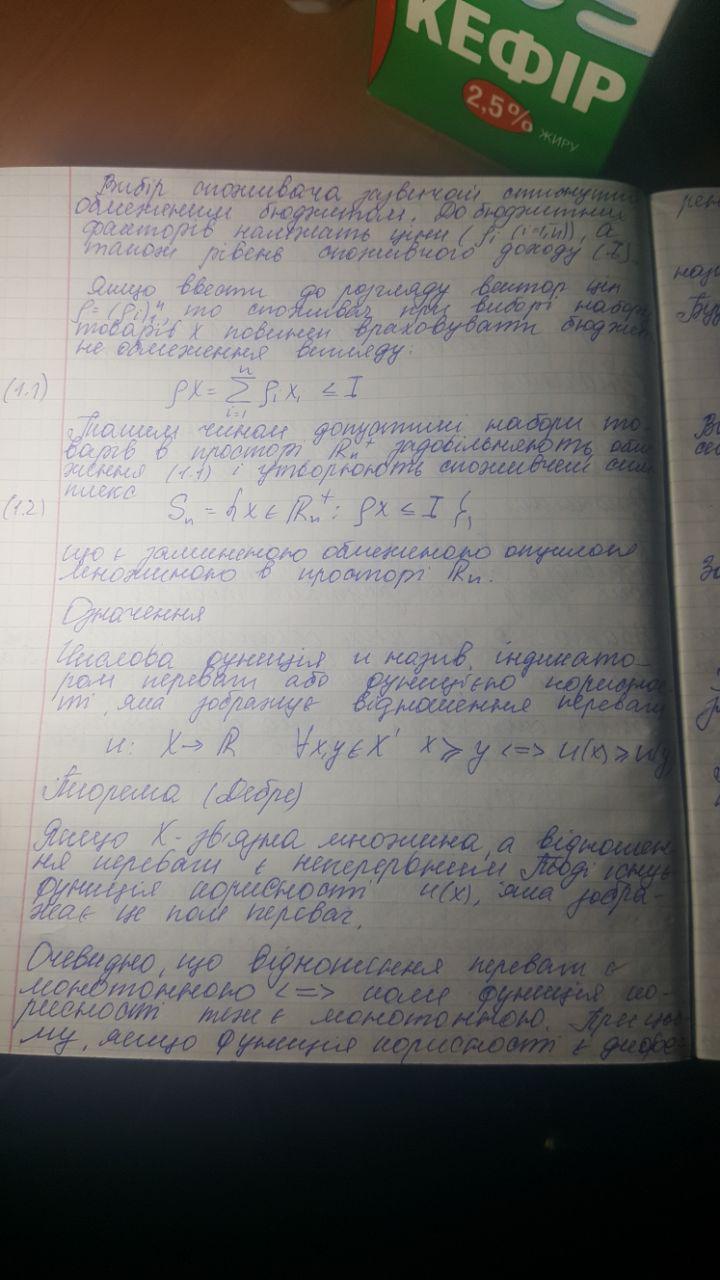 КЕФІР
2,5%
ЖИРУ
Вибір споживача зазвичай
обмеженим бюджетом. До бюджетних
факторів належать ціни (ρi (i=1,n)), а
також рівень споживчого доходу (I).
Якщо ввести до розгляду вектор цін
ρ=(ρi)₁ⁿ, то споживач при виборі набору
товарів x повинен враховувати бюджет
не обмеження вигляду:
(1.1) ρx = Σ ρi xi ≤ I
n
i=1
Таким чином допустимі набори то-
варів в просторі Rn+ задовільняють обме
ження (1.1) і утворюють споживчий сим
плекс
(1.2) Sn = {x ∈ Rn+: ρx ≤ I},
що є замкненою обмеженою опуклою
множиною в просторі Rn.
Означення
Числова функція u назив. індикато-
ром переваги або функцією корисно-
ті, яка зображує відношення переваги
u: X → R ∀x,y ∈ X' x ≥ y <=> u(x) ≥ u(y
Теорема (Дебре)
Якщо X - зв'язна множина, а відношен-
ня переваги є неперервним. Тоді існує
функція корисності u(x), яка зобра-
жає це поле переваг.
Очевидно, що відношення переваги є
монотонною <=> коли функція ко-
рисності теж є монотонною. При цьо-
му, якщо функція корисності є дифе-
рен
назі
Бу
В
се
За